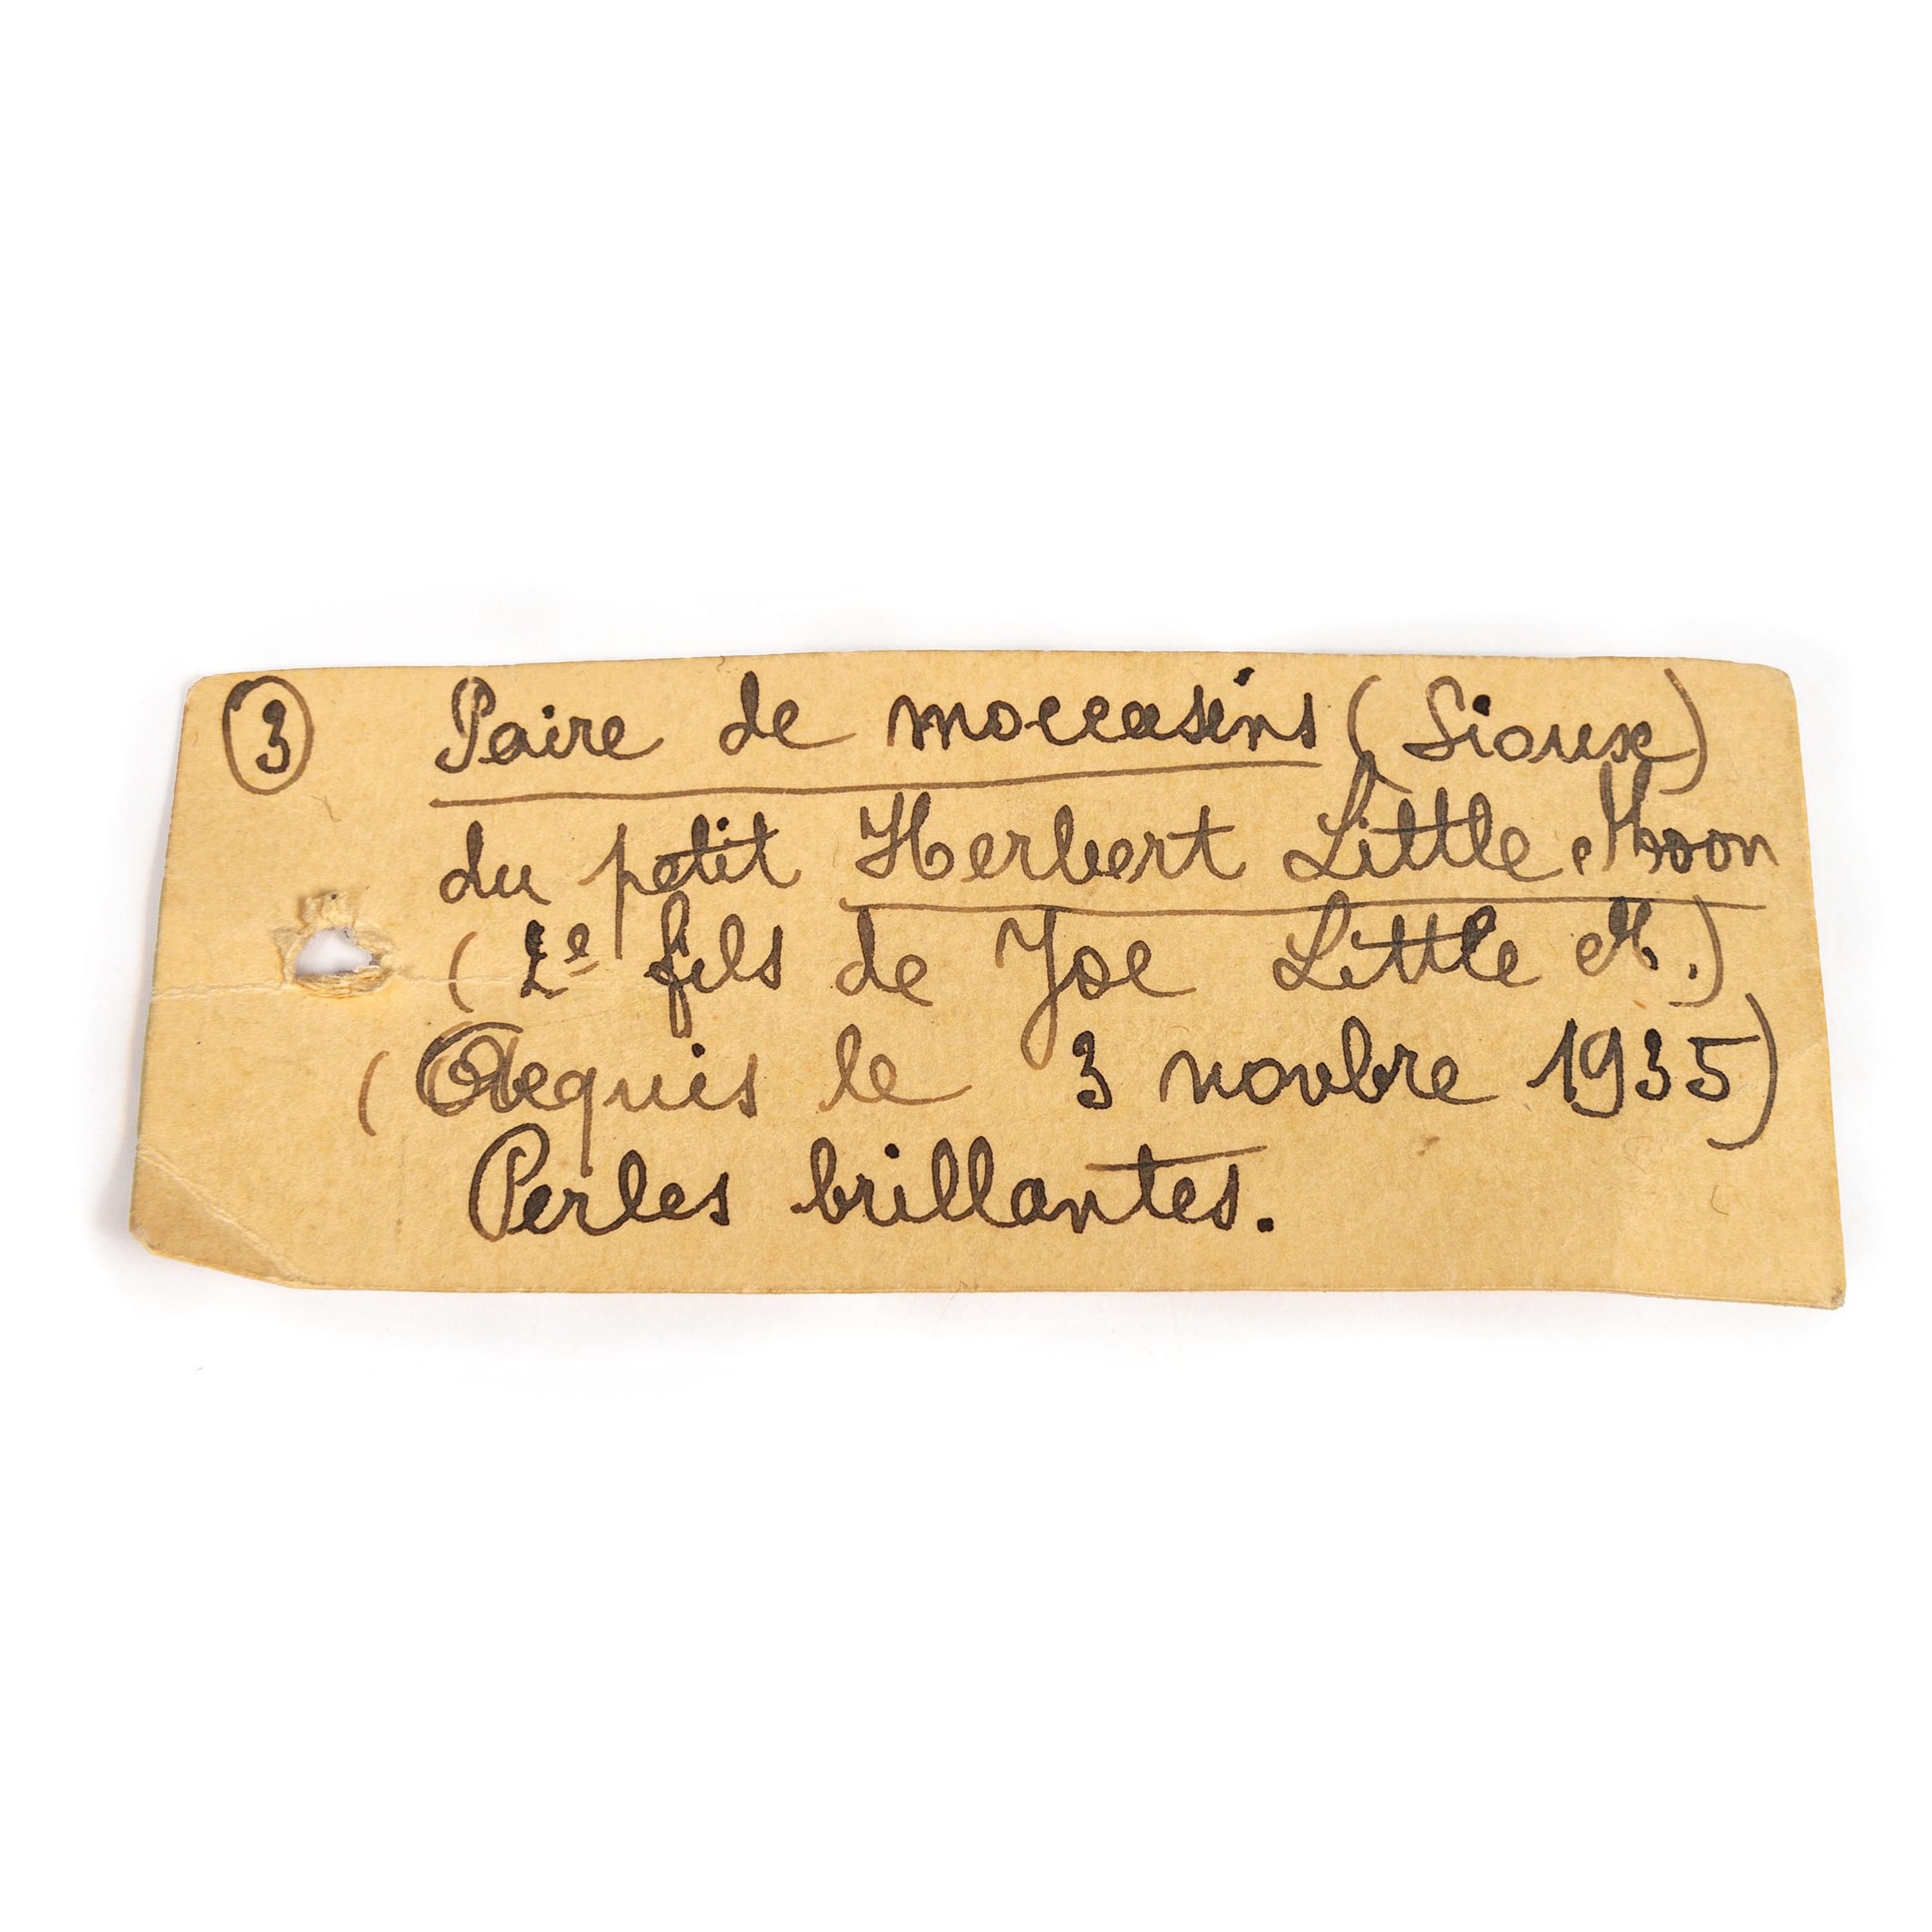 ③ Paire de moccasins (Sioux)
du petit Herbert Little Moon
(2e fils de Joe Little M.)
(Acquis le 3 novbre 1935)
Perles brillantes.